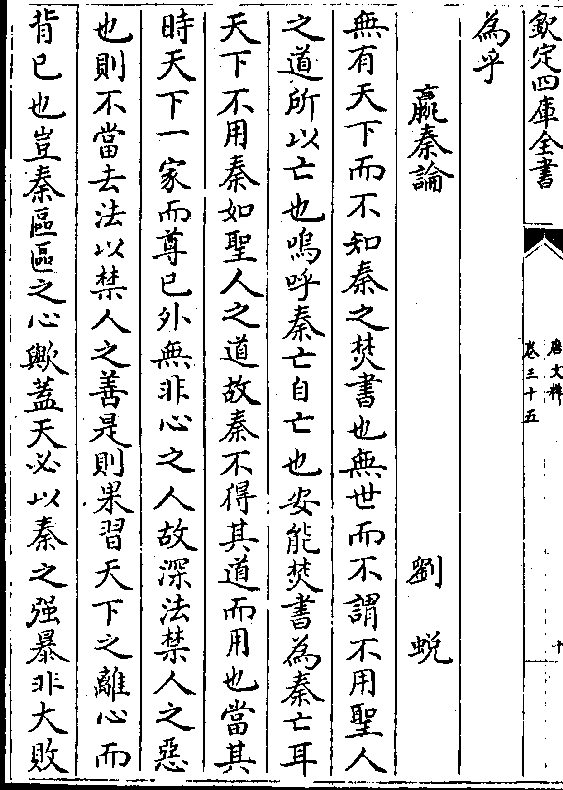 欽定四庫全書
唐文粹
卷三十五
十
為乎
嬴秦論
劉蛻
無有天下而不知秦之焚書也無世而不謂不用聖人
之道所以亡也嗚呼秦亡自亡也安能焚書為秦亡耳
天下不用秦如聖人之道故秦不得其道而用也當其
時天下一家而尊已外無非心之人故深法禁人之惡
也則不當去法以禁人之善是則果習天下之離心而
背已也豈秦區區之心歟蓋天必以秦之强暴非大敗